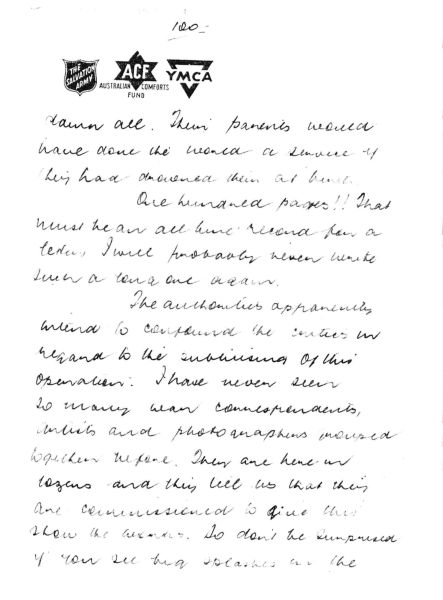 100-
THE SALVATION ARMY
ACF
AUSTRALIAN COMFORTS FUND
YMCA
damn all. Their parents would
have done the world a service if
they had drowned them at birth.
One hundred pages!! That
must be an all time record for a
letter, I will probably never write
such a long one again.
The authorities apparently
intend to confound the critics in
regard to the publicising of this
operation. I have never seen
so many war correspondents,
artists and photographers grouped
together before. They are here in
dozens and they tell us that they
are commissioned to give this
show the works. So don't be surprised
if you see big splashes in the